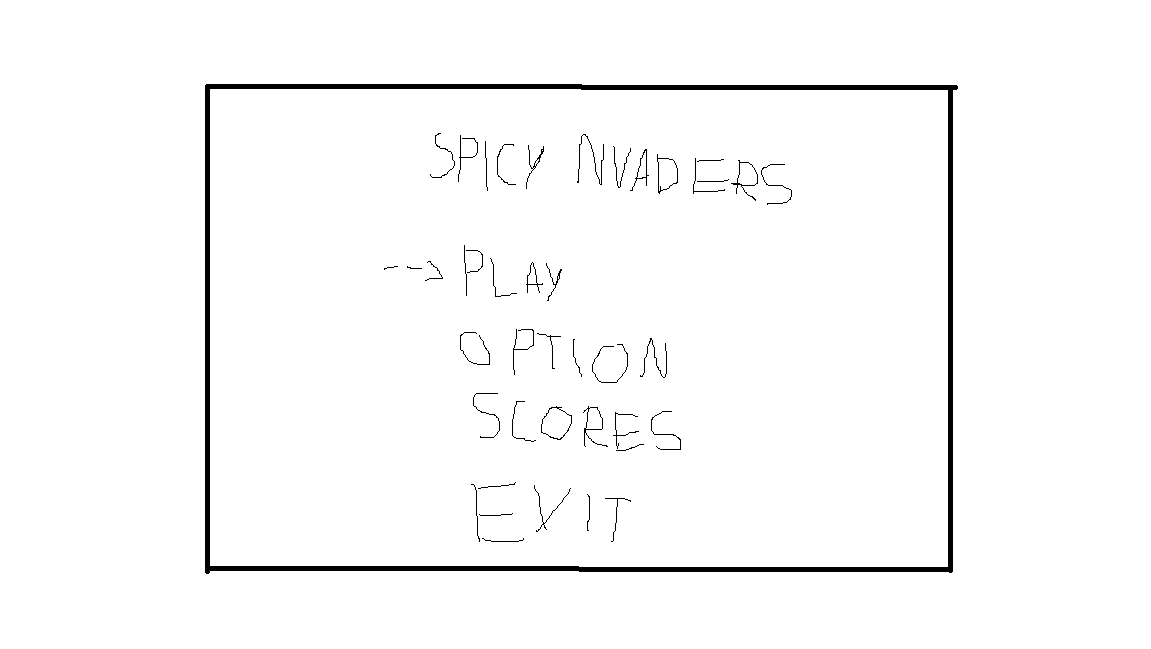 SPICY NVADERS
--> PLAY
OPTION
SCORES
EXIT